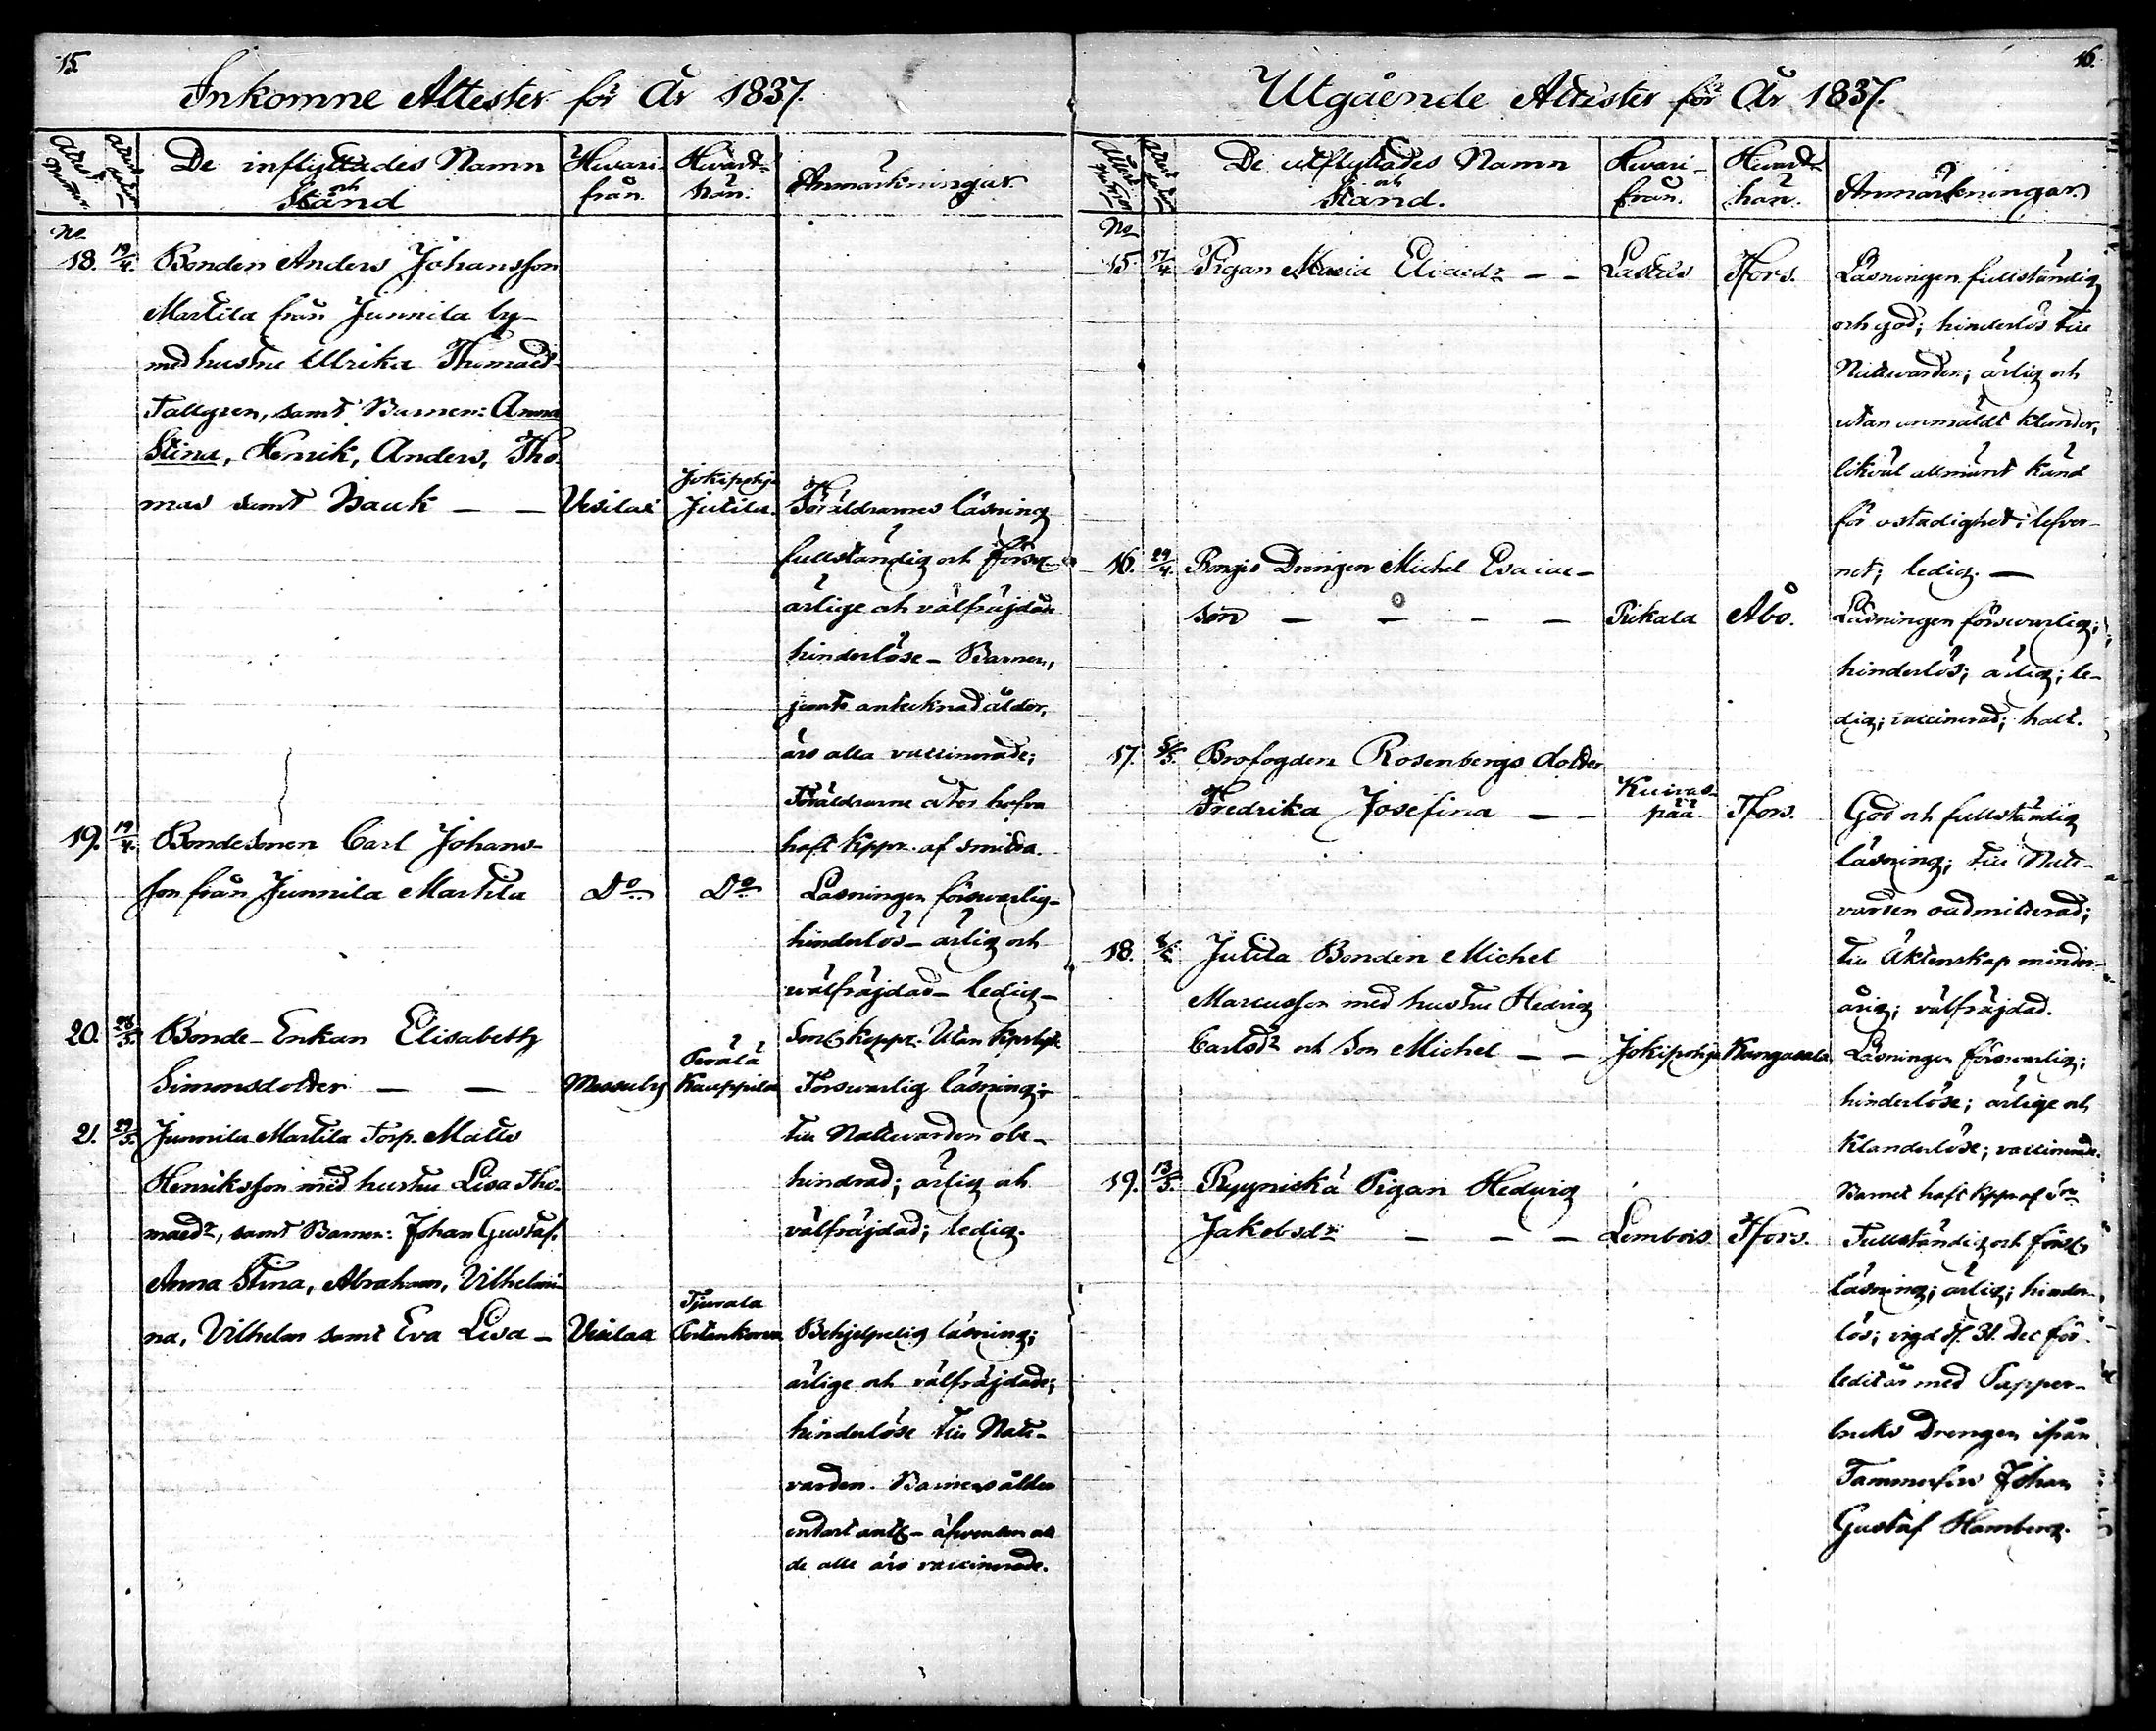 15
Inkomne Attester för År 1837.
De inflyttades Namn
och
Stånd
Hvari-
från.
Hvart-
hän.
Anmärkningar.
No
18. 19/4. Bonden Anders Johansson
Martila från Junnila by
med hustru Ulrika Thomaed.
Tallgren, samt Barnen: Anna
Stina, Henrik, Anders, Tho-
mas samt Isaak — — Vesilax Jokipohja
Jutila. Föräldrarnes läsning
fullständig och försv.
ärlige och välfräjdade
hinderlöse - Barnen,
jemte antecknad ålder,
äro alla vaccinerade;
Föräldrarne åter hafva
haft kppr. af smitta.
19. 19/4. Bondesonen Carl Johans-
son från Junnila Martila Do Do Läsningen försvarlig-
hinderlös - ärlig och
välfräjdad - ledig -
20. 28/5. Bonde-Enkan Elisabeth
Simonsdotter — — Messuby Perälä
Kauppila Försvarlig läsning;
till Nattvarden obe-
hindrad; ärlig och
välfräjdad; ledig.
21. 29/5. Junnila Martila Torp. Matts
Henriksson med hustru Lisa Tho-
maedr, samt Barnen: Johan Gustaf,
Anna Stina, Abraham, Vilhelmi-
na, Vilhelm samt Eva Lisa - Vesilax Behjelpelig läsning;
ärlige och välfräjdade;
hinderlöse till Natt-
varden. Barnens ålder
de alla äro vaccinerade.
16.
Utgående Attester för År 1837.
De utflyttades Namn
och
Stånd.
Hvari-
från.
Hvart-
hän.
Anmärkningar.
No
15. 17/4. Pigan Maria Eliaedr — — Tfors. Läsningen fullständig
och god; hinderlös till
Nattvarden; ärlig och
utan anmäldt klander,
likväl allmänt känd
för ostadighet i lefver-
net; ledig. —
16. 29/4. Drengen Michel Esaias-
son — — — — Åbo. Läsningen försvarlig;
hinderlös; ärlig; le-
dig; vaccinerad; halt.
17. 5/5. Brofogden Rosenbergs dotter
Fredrika Josefina — — Kuivas-
pää. Tfors. God och fullständig
läsning; till Natt-
varden oadmitterad;
till Äktenskap minder-
årig; välfräjdad.
18. Jutila Bonden Michel
Marcusson med hustru Hedvig
Carlsdr och Son Michel — — Jokipohja Kangasala Läsningen försvarlig;
hinderlöse; ärlige och
klanderlöse; vaccinerade.
Barnet haft kppr af
19. 13/5. Pyynickä Pigan Hedvig
Jakobsdr — — — Lembois Tfors. Fullständig och försv.
läsning; ärlig; hinder-
lös; vigd d. 31. Dec för-
ledit år med Papper-
bruks Drengen ifrån
Tammerfors Johan
Gustaf Hamberg.